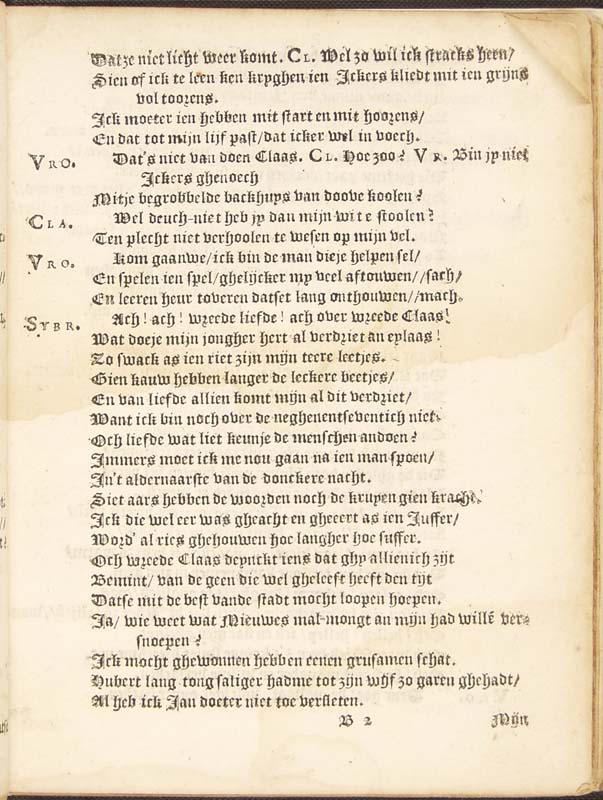 Datze niet licht weer komt. CL. Wel zo wil ick stracks heen/
Sien of ick te leen ken kryghen ien Jckers kliedt mit ien gryns
vol toorens.
Ick moeter ien hebben mit start en mit hoorens/
En dat tot mijn lijf past/dat icker wel in voech.
VRO. Dat's niet van doen Claas. CL. Hoe zoo? VR. Bin jy niet
Jckers ghenoech
Mitje begrobbelde backhuys van doove koolen?
CLA. Wel deuch-niet heb jy dan mijn wit e stoolen?
Ten plecht niet verhoolen te wesen op mijn vel.
VRO. Kom gaanwe/ick bin de man dieje helpen sel/
En spelen ien spel/ghelijcker my veel aftouwen//sach/
En leeren heur toveren datset lang onthouwen//mach.
SYBR. Ach! ach! wreede liefde! ach over wreede Claas!
Wat doeje mijn jongher hert al verdriet an eylaas!
Zo swack as ien riet zijn mijn teere leetjes.
Gien kauw hebben langer de leckere beetjes/
En van liefde allien komt mijn al dit verdriet/
Want ick bin noch over de neghenentseventich niet.
Och liefde wat liet keunje de menschen andoen?
Immers moet ick me nou gaan na ien man spoen/
In't aldernaarste van de donckere nacht.
Siet aars hebben de woorden noch de kruyen gien kracht.
Ick die wel eer was gheacht en gheeert as ien Juffer/
Word' al ries ghehouwen hoe langher hoe suffer.
Och wreede Claas depnckt iens dat ghy allienich zijt
Bemint/ van de geen die wel gheleeft heeft den tijt
Datse mit de best vande stadt mocht loopen hoepen.
Ja/ wie weet wat Nieuwes mal-mongt an mijn had willē ver-
snoepen?
Ick mocht ghewonnen hebben eenen grusamen schat.
Hubert lang-tong saliger hadme tot zijn wijf zo garen ghehadt/
Al heb ick Jan doeter niet toe versleten.
B 2 Mijn